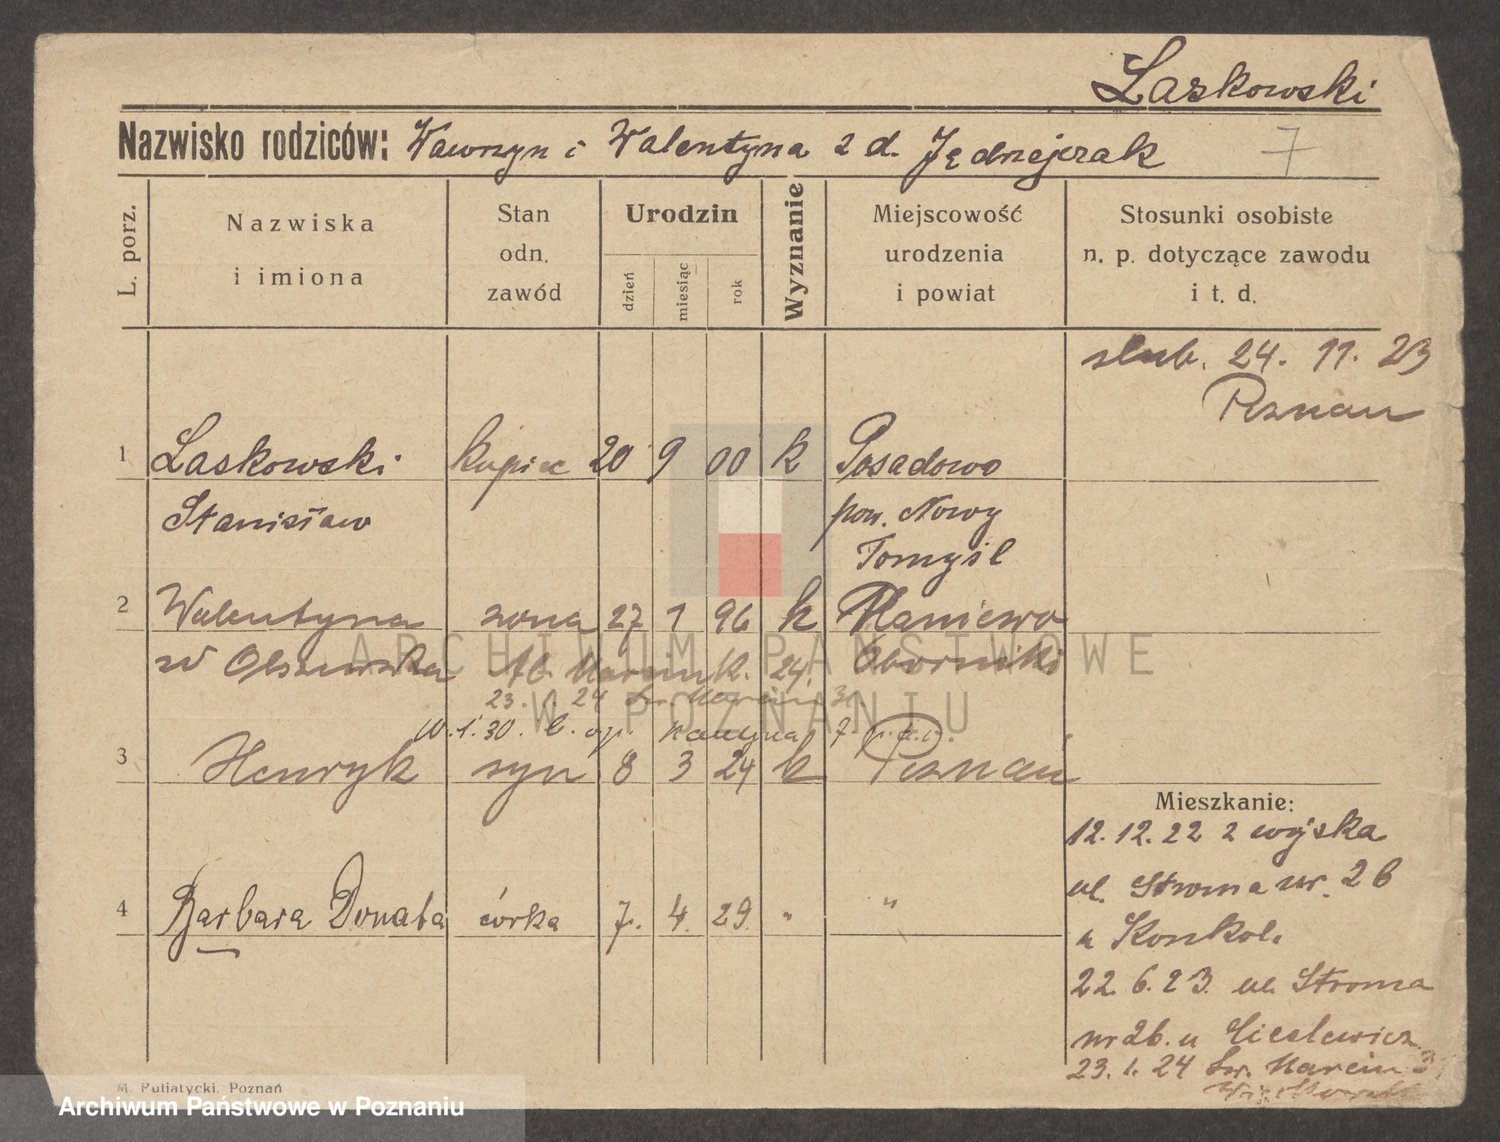 Laskowski
Nazwisko rodziców: Wawrzyn i Walentyna z d. Jędrzejczak 7
L. porz.
Nazwiska i imiona
Stan odn. zawód
Urodzin
dzień
miesiąc
rok
Wyznanie
Miejscowość urodzenia i powiat
Stosunki osobiste n. p. dotyczące zawodu i t. d.
slub. 24. 11. 23
Poznan
1 Laskowski kupiec 20 9 00 k Posadowo
Stanisław pow. Nowy
Tomyśl
2 Walentyna zona 27 1 96 k
Olszewska Oborniki
23. 1. 24 Św. Marcin
3 Henryk syn 8 3 24 k Poznań
4 Barbara Donata córka 7. 4. 29. " "
Mieszkanie:
12. 12. 22 z wojska
ul. Stroma nr. 26
u Konkol.
22. 6. 23. ul. Stroma
nr 26. u
23. 1. 24 Św. Marcin
M. Putiatycki, Poznań
ARCHIWUM PAŃSTWOWE
W POZNANIU
Archiwum Państwowe w Poznaniu